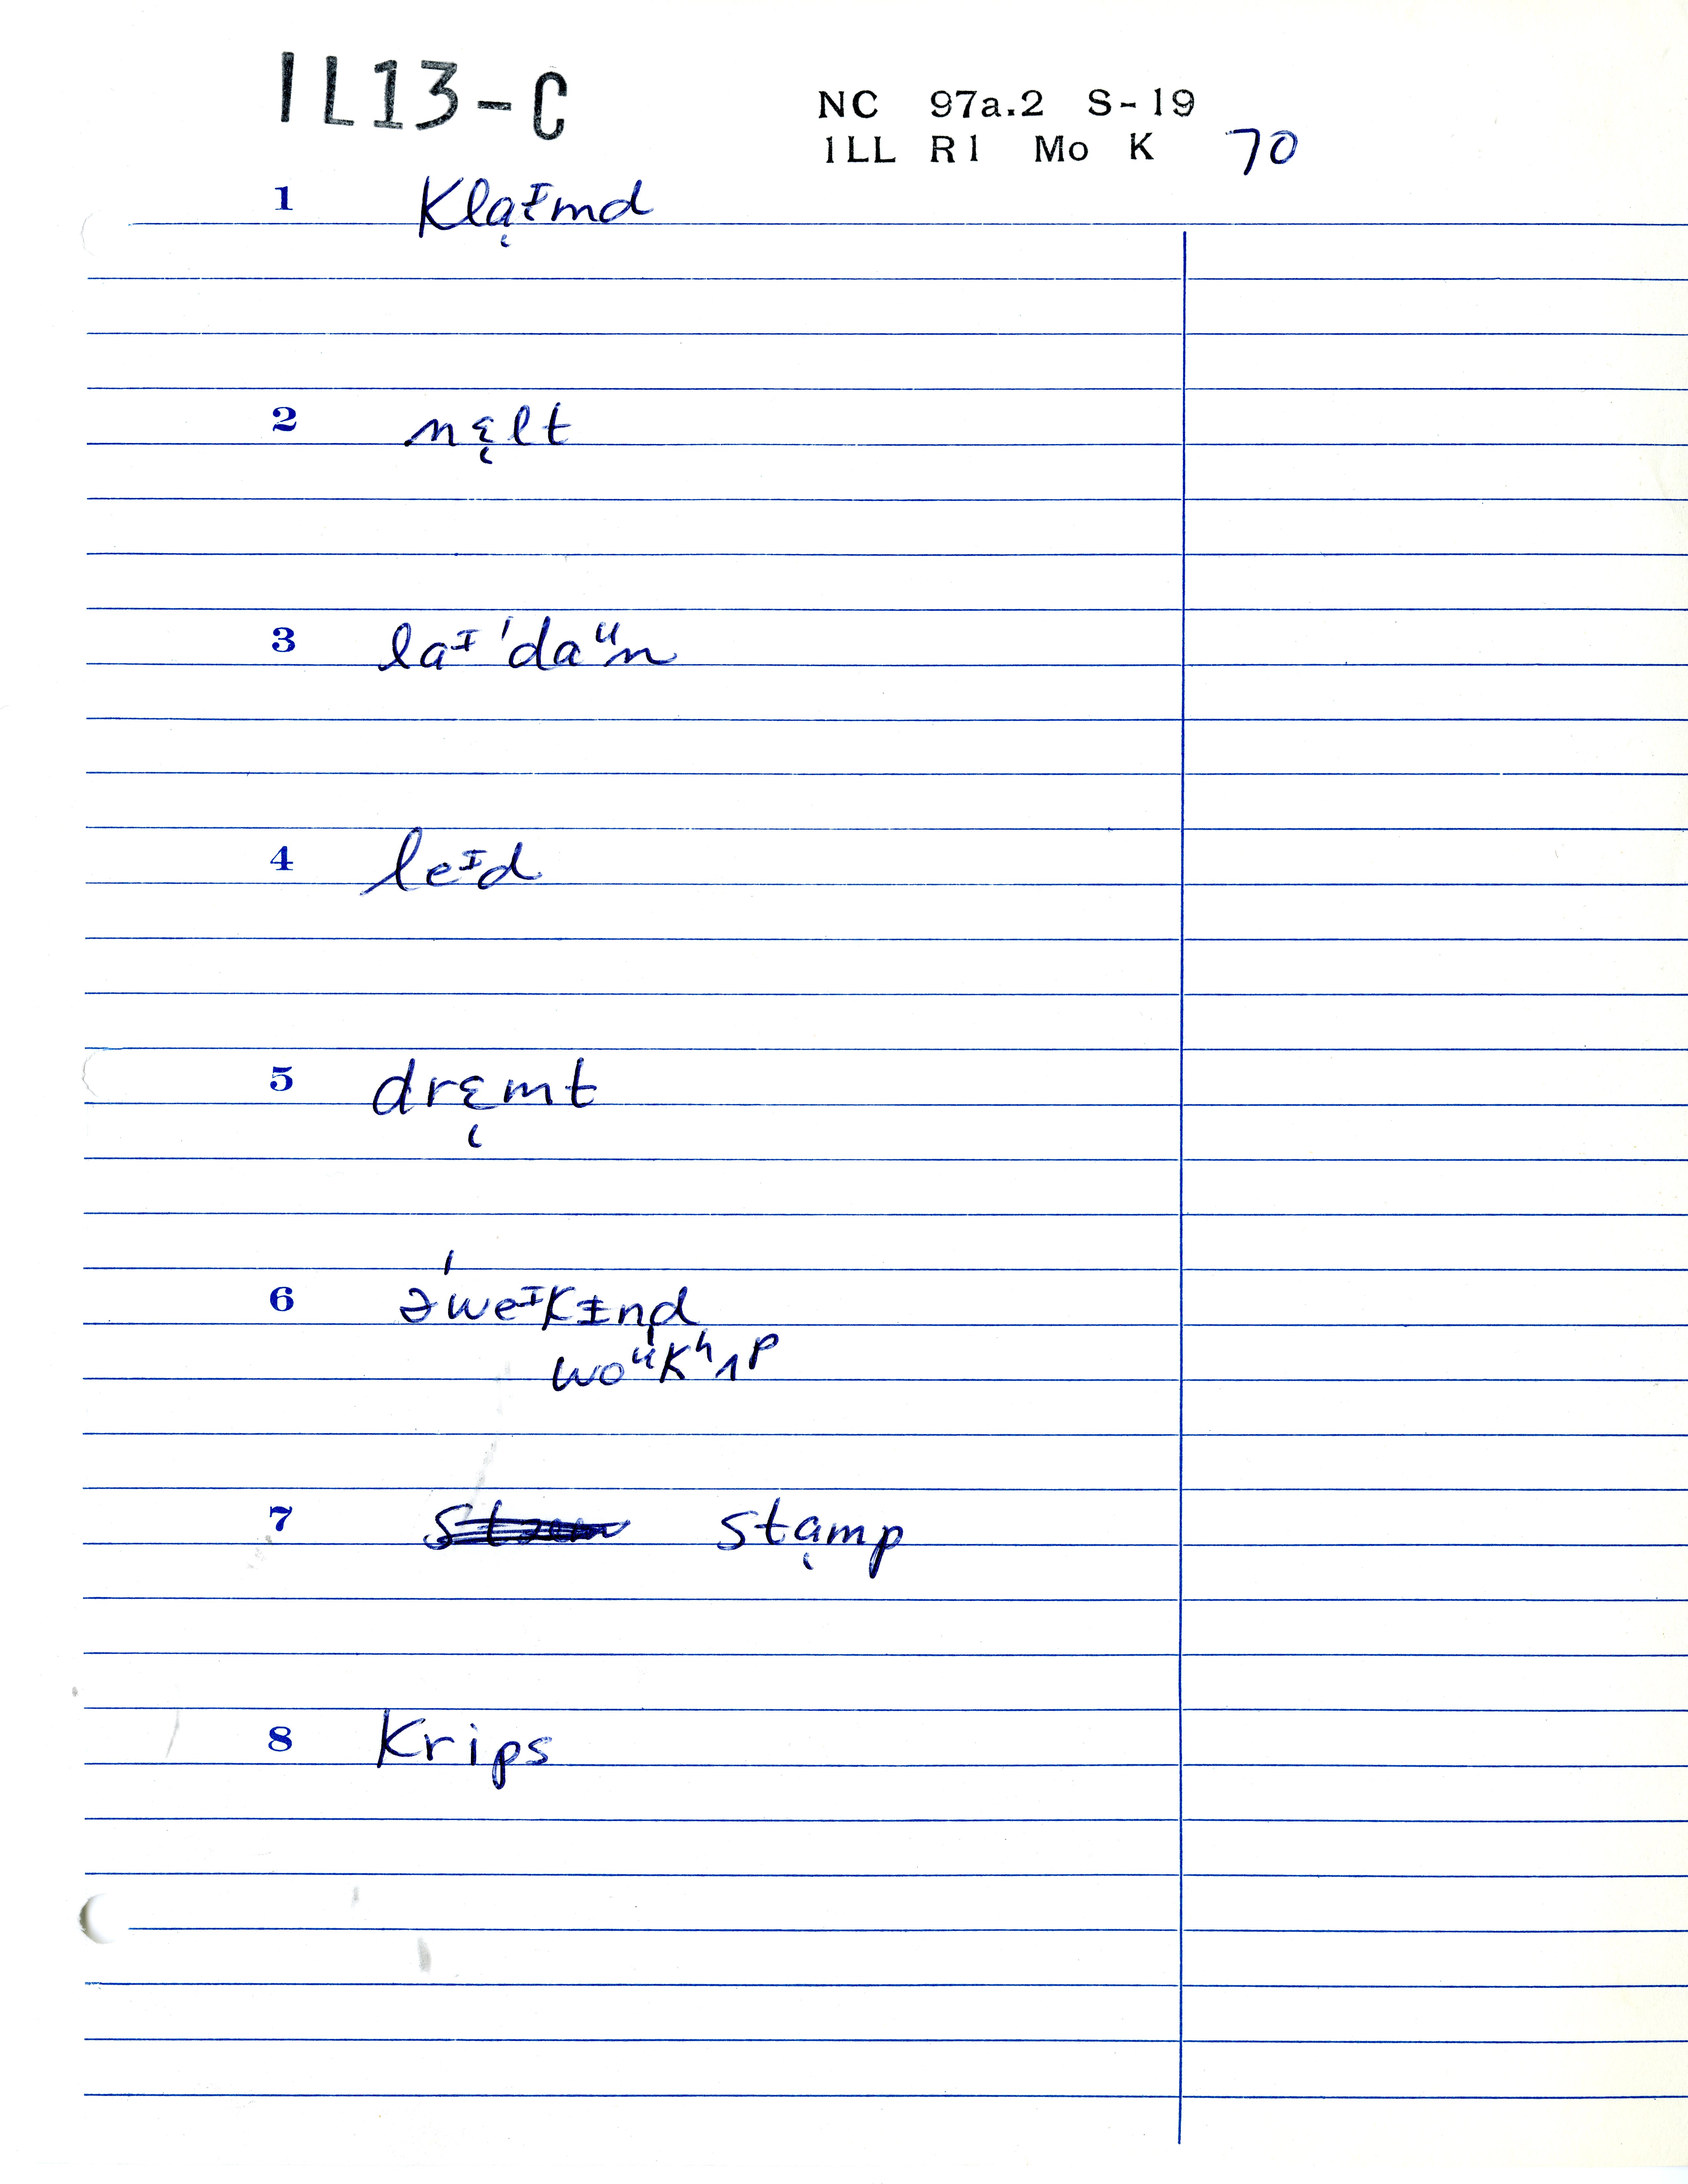 IL13-C
NC 97a.2 S-19
ILL R1 Mo K 70
1 kla̜ᵻmd
2 nɛ̜lt
3 laᶦ ˈdaᵘn
4 leᶦd
5 drɛ̜mt
6 əˈweᶦkɪnd
woᵘkʰʌp
7 sta̜mp
8 krips